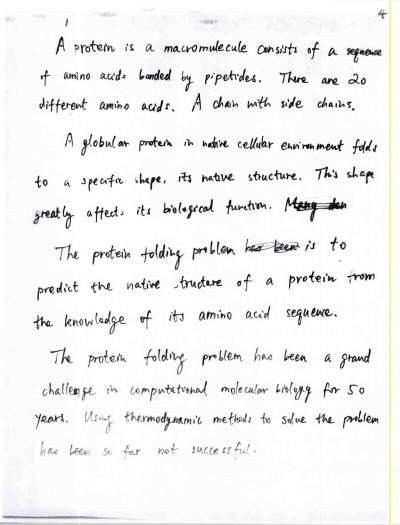 4
A protein is a macromulecule consists of a sequence
of amino acids bonded by pipetides. There are 20
different amino acids. A chain with side chains.
A globular protein in native cellular environment folds
to a specific shape, its native structure. This shape
greatly affects its biological function. Many
The protein folding problem has been is to
predict the native structure of a protein from
the knowledge of its amino acid sequence.
The protein folding problem has been a grand
challenge in computational molecular biology for 50
years. Using thermodynamic methods to solve the problem
has been so far not successful.